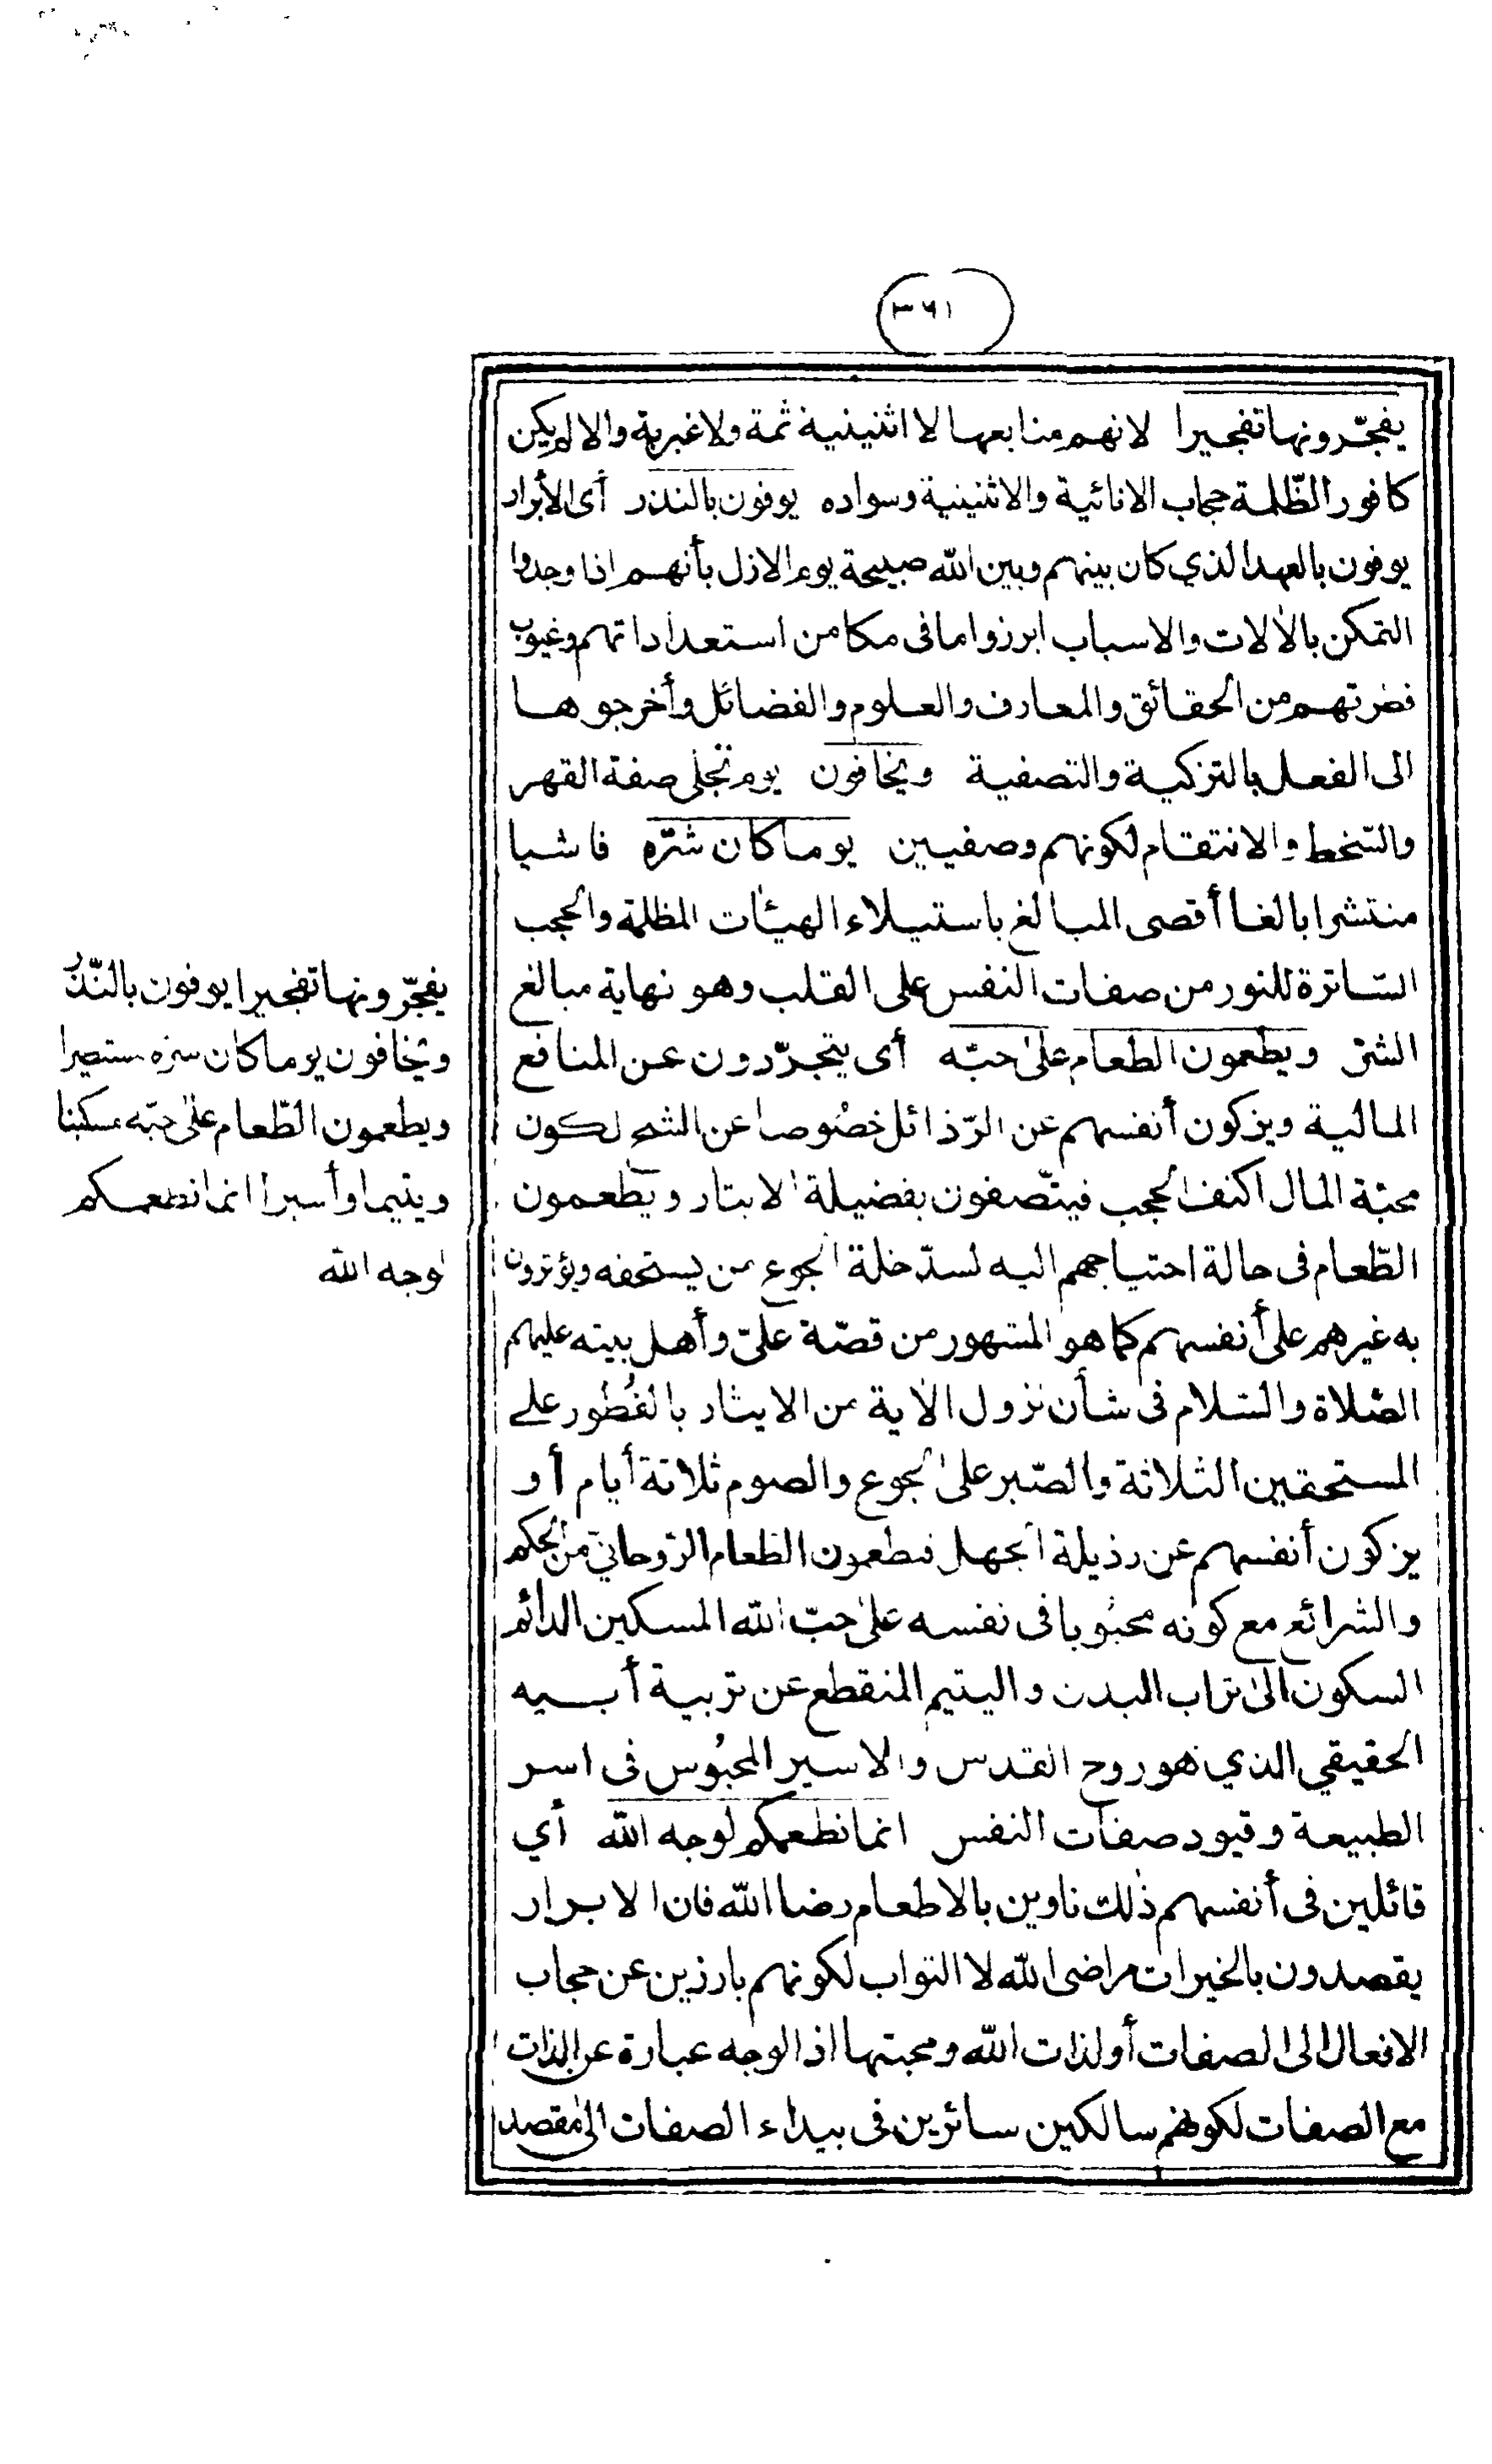 ٣٦١
يفجّرونها تفجيرا لانهم منابعها لا اثنينية ثمة ولا غيرية والا لم يكن
كافور الظّلمة حجاب الانائية والاثنينية وسواده يوفون بالنذر أى الأبرار
يوفون بالعهد الذي كان بينهم وبين الله صبيحة يوم الازل بأنهم اذا وجدوا
التمكن بالآلات والاسباب ابرزوا ما فى مكامن استعداداتهم وغيوب
فطرتهم من الحقائق والمعارف والعلوم والفضائل وأخرجوها
الى الفعل بالتزكية والتصفية ويخافون يوم تجلى صفة القهر
والسّخط والانتقام لكونهم وصفيين يوما كان شرّه فاشيا
منتشرا بالغا أقصى المبالغ باستيلاء الهيئات المظلمة والحجب
السّاترة للنور من صفات النفس على القلب وهو نهاية مبالغ
الشرّ ويطعمون الطعام على حبّه أى يتجرّدون عن المنافع
المالية ويزكون أنفسهم عن الرّذائل خصُوصا عن الشح لكون
محبّة المال اكثف الحجب فيتّصفون بفضيلة الايثار ويطعمون
الطّعام فى حالة احتياجهم اليه لسدّ خلة الجوع من يستحقه ويؤثرون
به غيرهم على أنفسهم كما هو المشهور من قصّة علىّ وأهل بيته عليهم
الصّلاة والسّلام فى شأن نزول الآية من الايثار بالفُطُور على
المستحقين الثلاثة والصّبر على الجوع والصوم ثلاثة أيام أو
يزكون أنفسهم عن رذيلة الجهل فيطعمون الطعام الرّوحانيّ من الحكم
والشرائع مع كونه محبُوبا فى نفسه على حبّ الله المسكين الدائم
السكون الى تراب البدن واليتيم المنقطع عن تربية أبيه
الحقيقي الذي هو روح القدس والاسير المحبُوس فى اسر
الطبيعة وقيود صفات النفس انما نطعمكم لوجه الله أي
قائلين فى أنفسهم ذلك ناوين بالاطعام رضا الله فان الابرار
يقصدون بالخيرات مراضى الله لا الثواب لكونهم بارزين عن حجاب
الافعال الى الصفات أو لذات الله ومحبتها اذ الوجه عبارة عن الذات
مع الصفات لكونهم سالكين سائرين فى بيداء الصفات الى مقصد
يفجّرونها تفجيرا يوفون بالنّذر
ويخافون يوما كان شره مستطيرا
ويطعمون الطّعام على حبّه مسكينا
ويتيما وأسيرا انما نطعمكم
لوجه الله